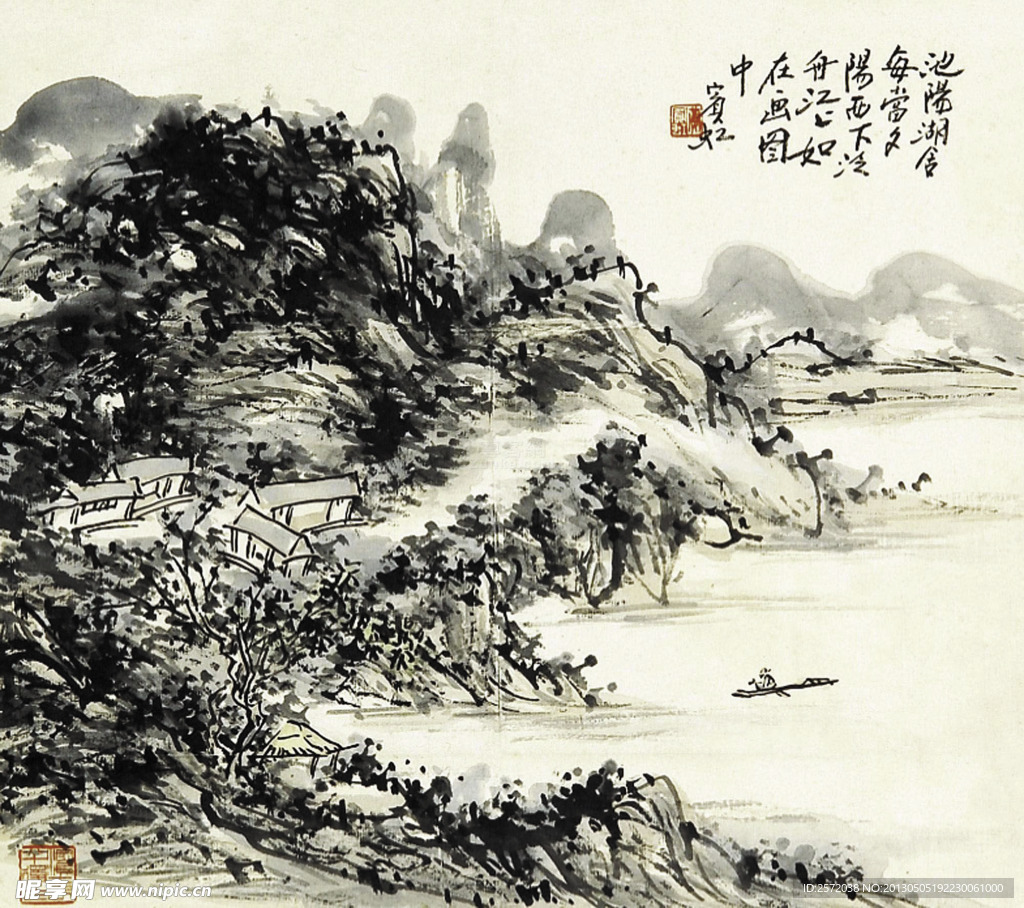 池陽湖舍
每當夕
陽西下泛
舟江上如
在画图
中
賓虹
昵享网 www.nipic.cn
ID:2572038 NO:20130505192230061000